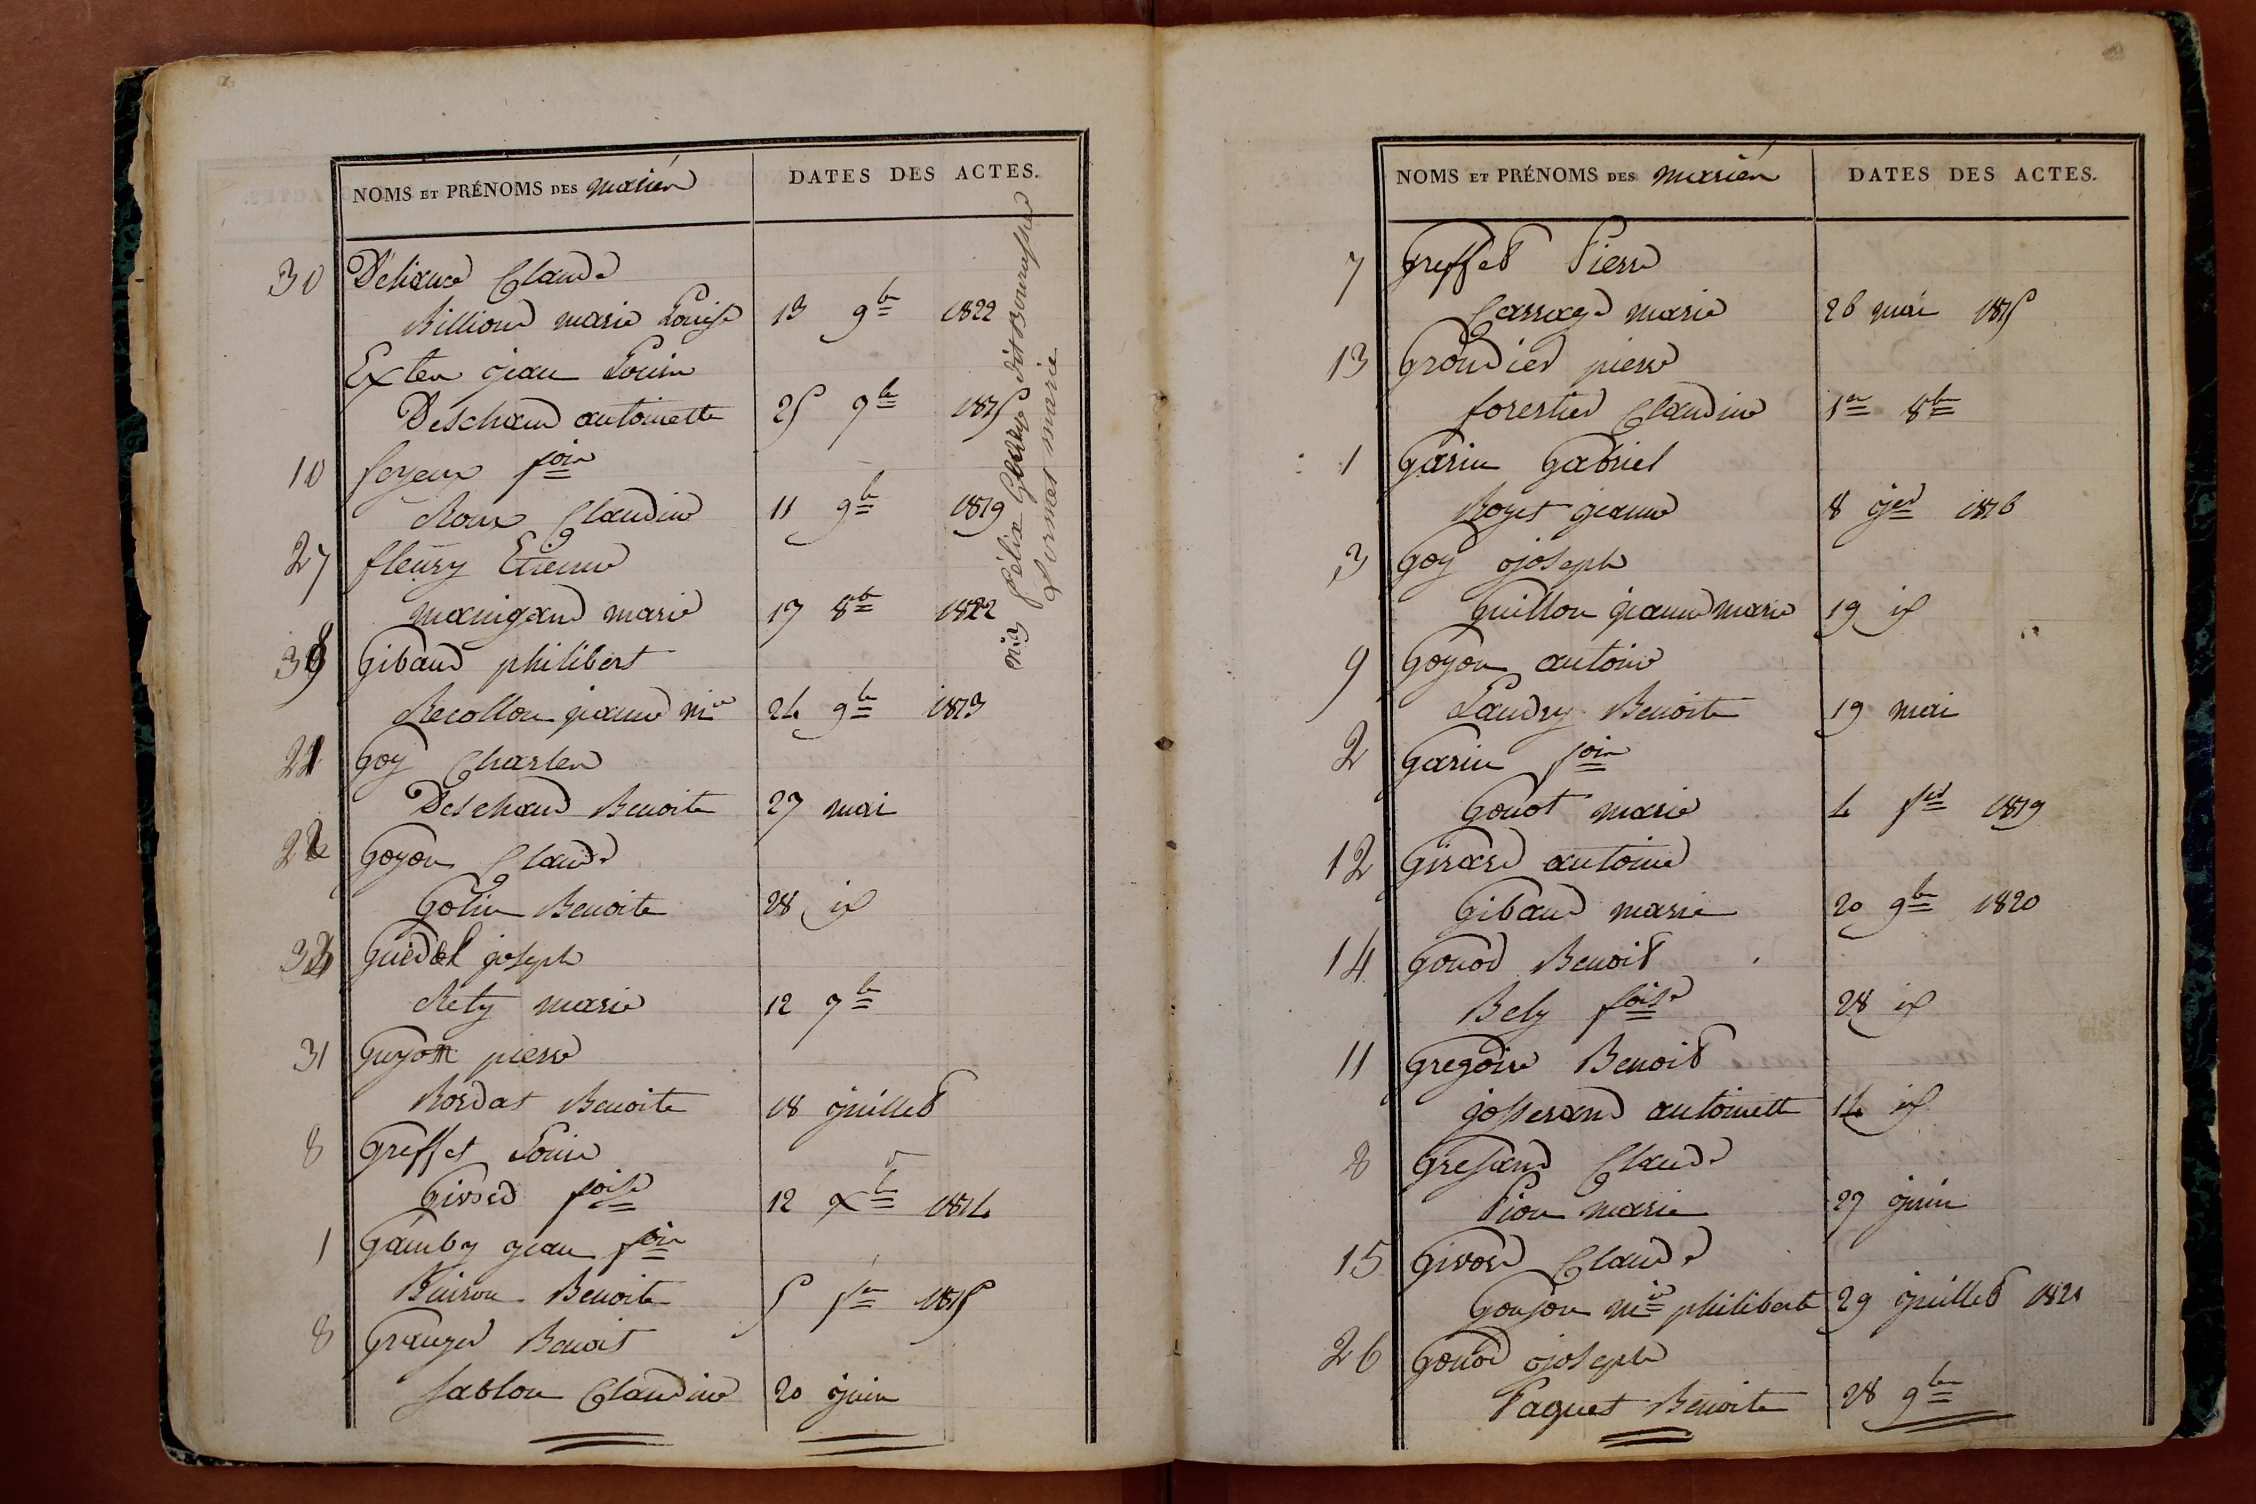 NOMS ET PRÉNOMS DES mariés DATES DES ACTES.
30 Déliance Claude
Billioud marie Louise 13 9bre 1822
Exten jean Louis
Deschand antoinette 25 7bre 1815
10 foyeux fois
Roux Claudine 11 9bre 1819
27 fleury Etienne
manigand marie 17 8bre 1822
39 Gibaud philibert
Recollon jeanne mie 24 9bre 1813
21 Goy Charles
Deschand Benoite 27 mai
22 Goyon Claude
Gotin Benoite 28 id
Guédel joseph
Rety marie 12 7bre
31 Guyon pierre
Bordat Benoite 18 juillet
8 Greffet Louis
Givord foise 12 Xbre 1814
1 Gamby jean fois
Buiron Benoite 5 1815
8 Granger Benoit
Sablon Claudine 20 juin
félix dit
marie
NOMS ET PRÉNOMS DES mariés DATES DES ACTES.
7 Greffet Pierre
Carrage marie 26 mai 1815
13 Grondier pierre
forestier Claudine 1er 8bre
1 Garin Gabriel
Royet jeanne 8 jer 1816
3 Goy joseph
Guillon jeanne marie 19 id
9 Goyon antoine
Landry Benoite 19 mai
2 Garin fois
Gonot marie 4 fer 1819
12 Girard antoine
Gibaud marie 20 9bre 1820
14 Gonod Benoit
Bely foise 28 id
11 Gregoire Benoit
josserand antoinette 14 id
8 Gresand Claude
Pion marie 27 juin
15 Givord Claude
Goujon mie philiberte 29 juillet 1821
26 Gonod joseph
Paquet Benoite 28 9bre